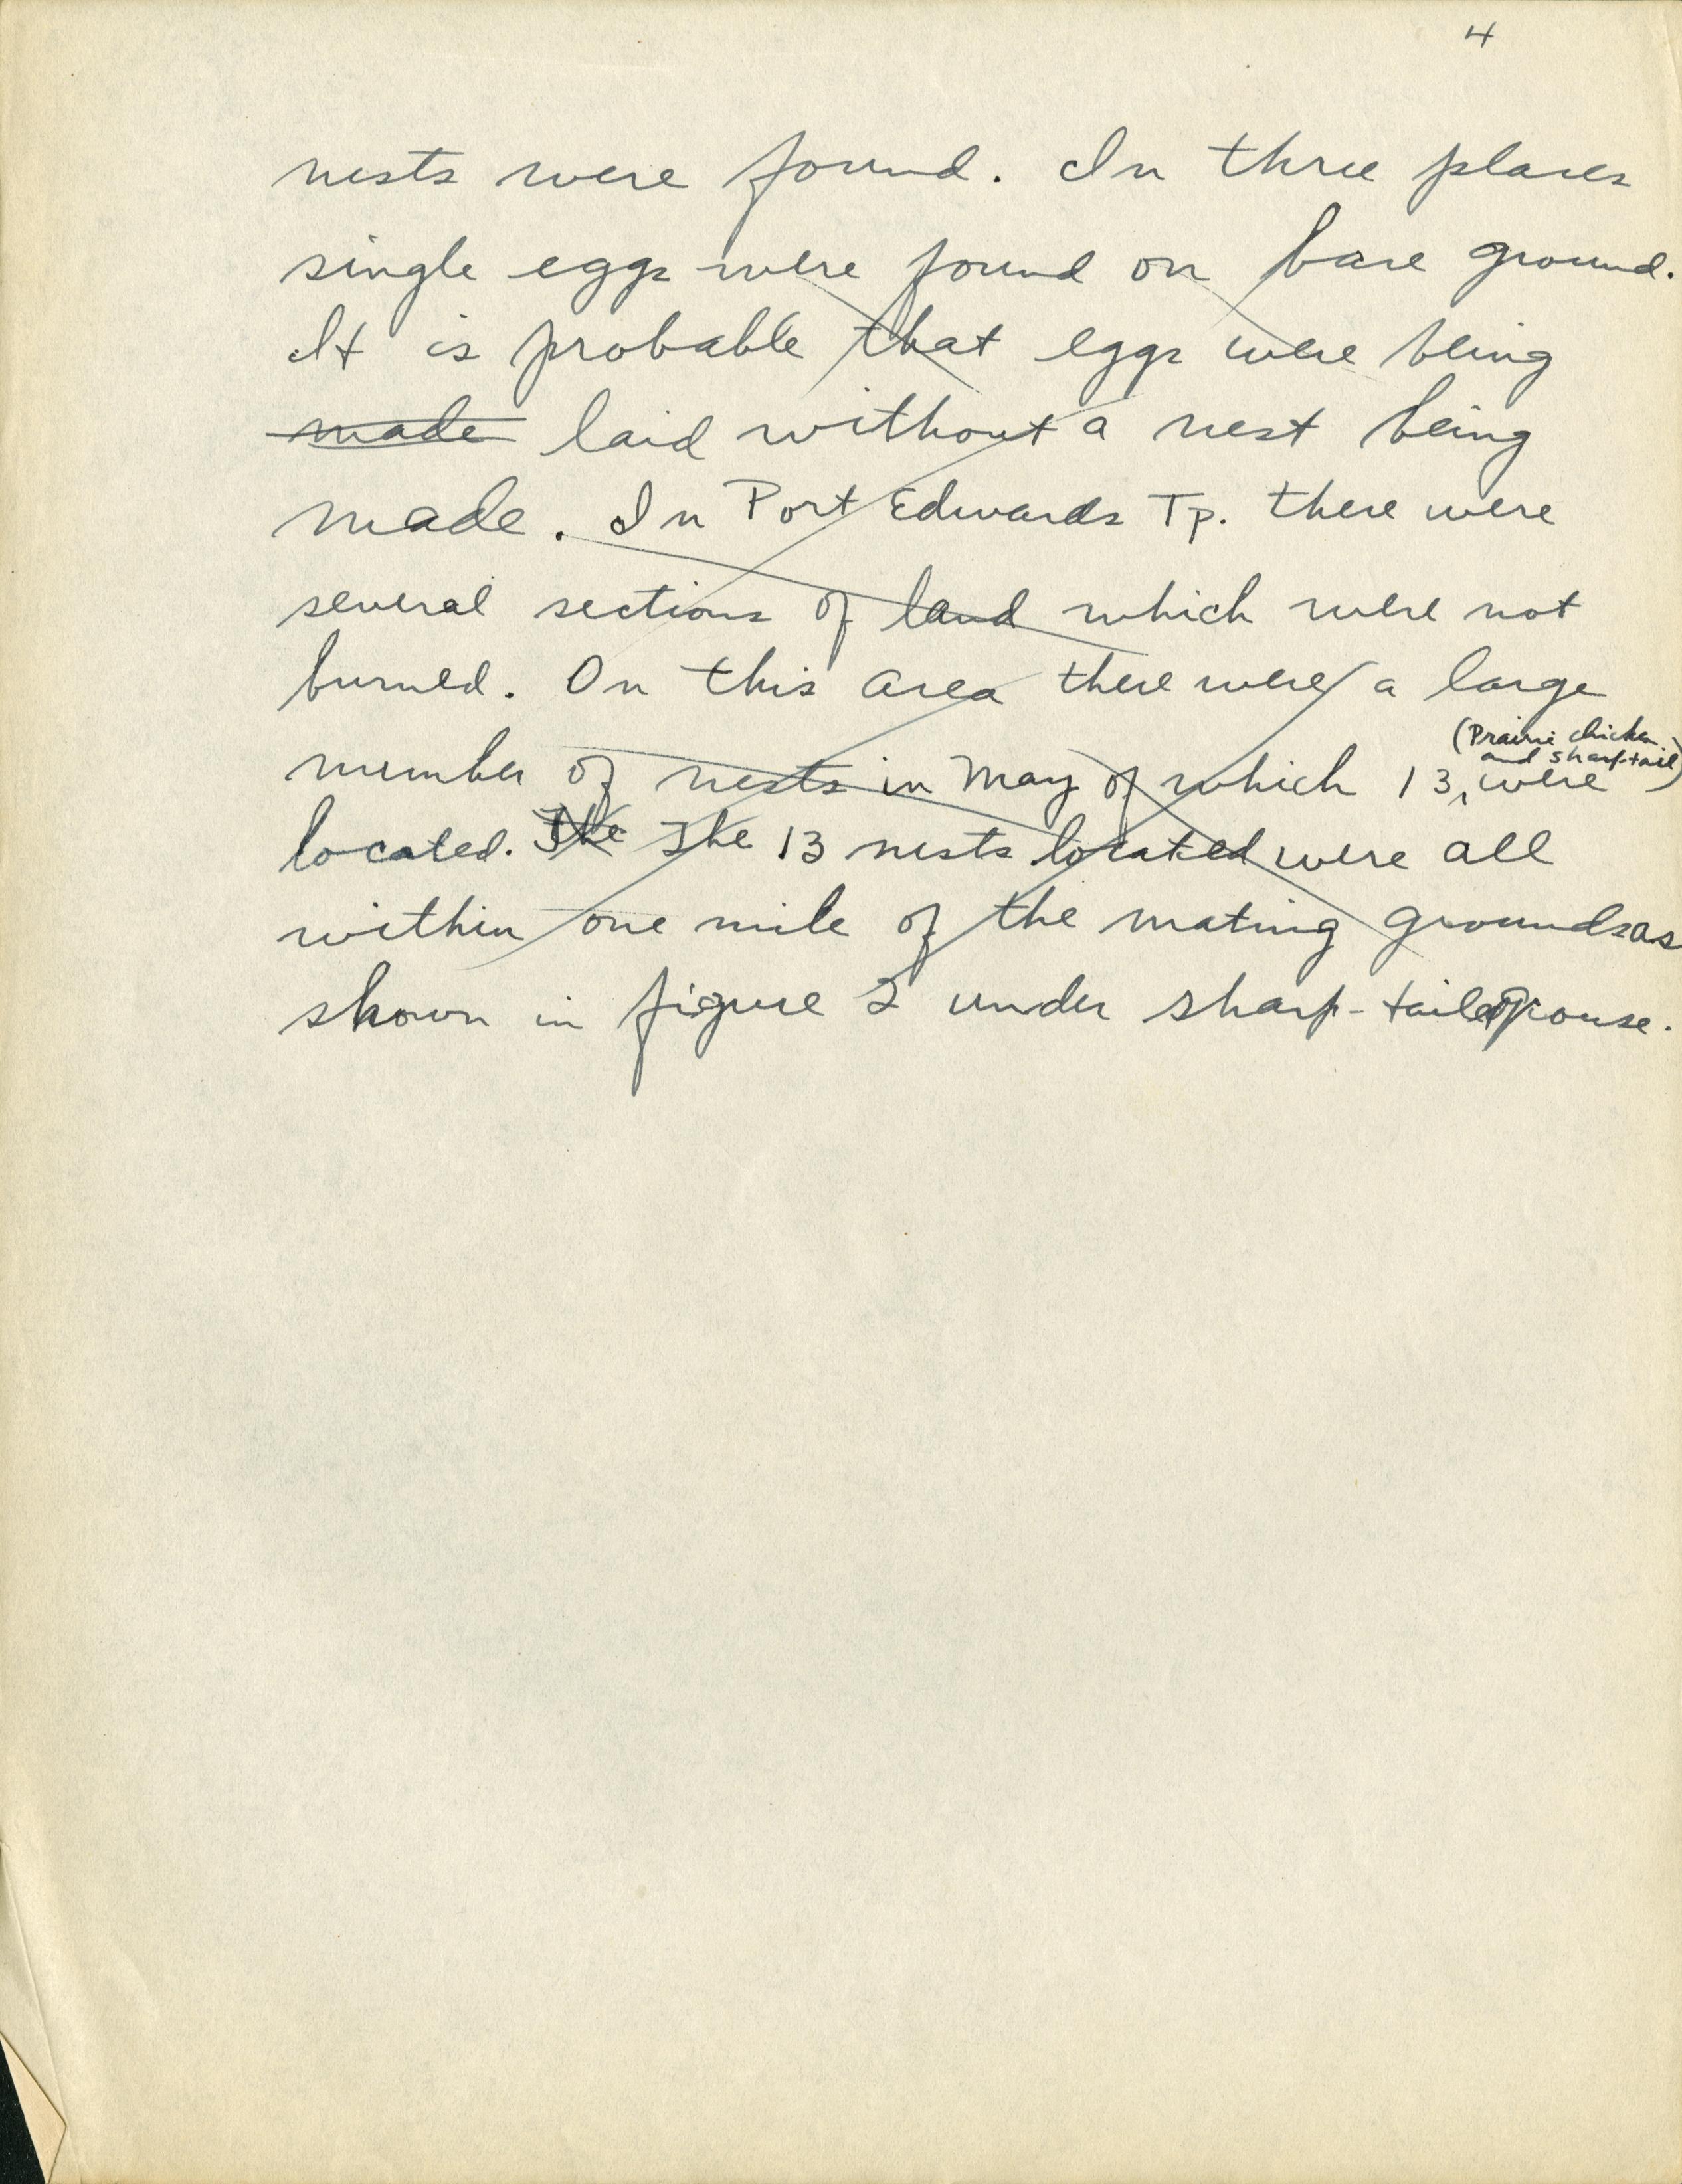 4
nests were found. In three places
single eggs were found on bare ground.
It is probable that eggs were being
made laid without a nest being
made. In Port Edwards Tp. there were
several sections of land which were not
burned. On this area there were a large
(Prairie chicken
and sharp-tail)
number of nests in May of which 13 were
located. The The 13 nests located were all
within one mile of the mating grounds as
shown in figure 2 under sharp-tailed grouse.